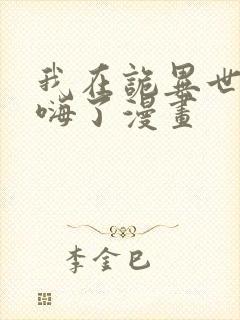 我在詭異世
嗨了漫畫
李金巳